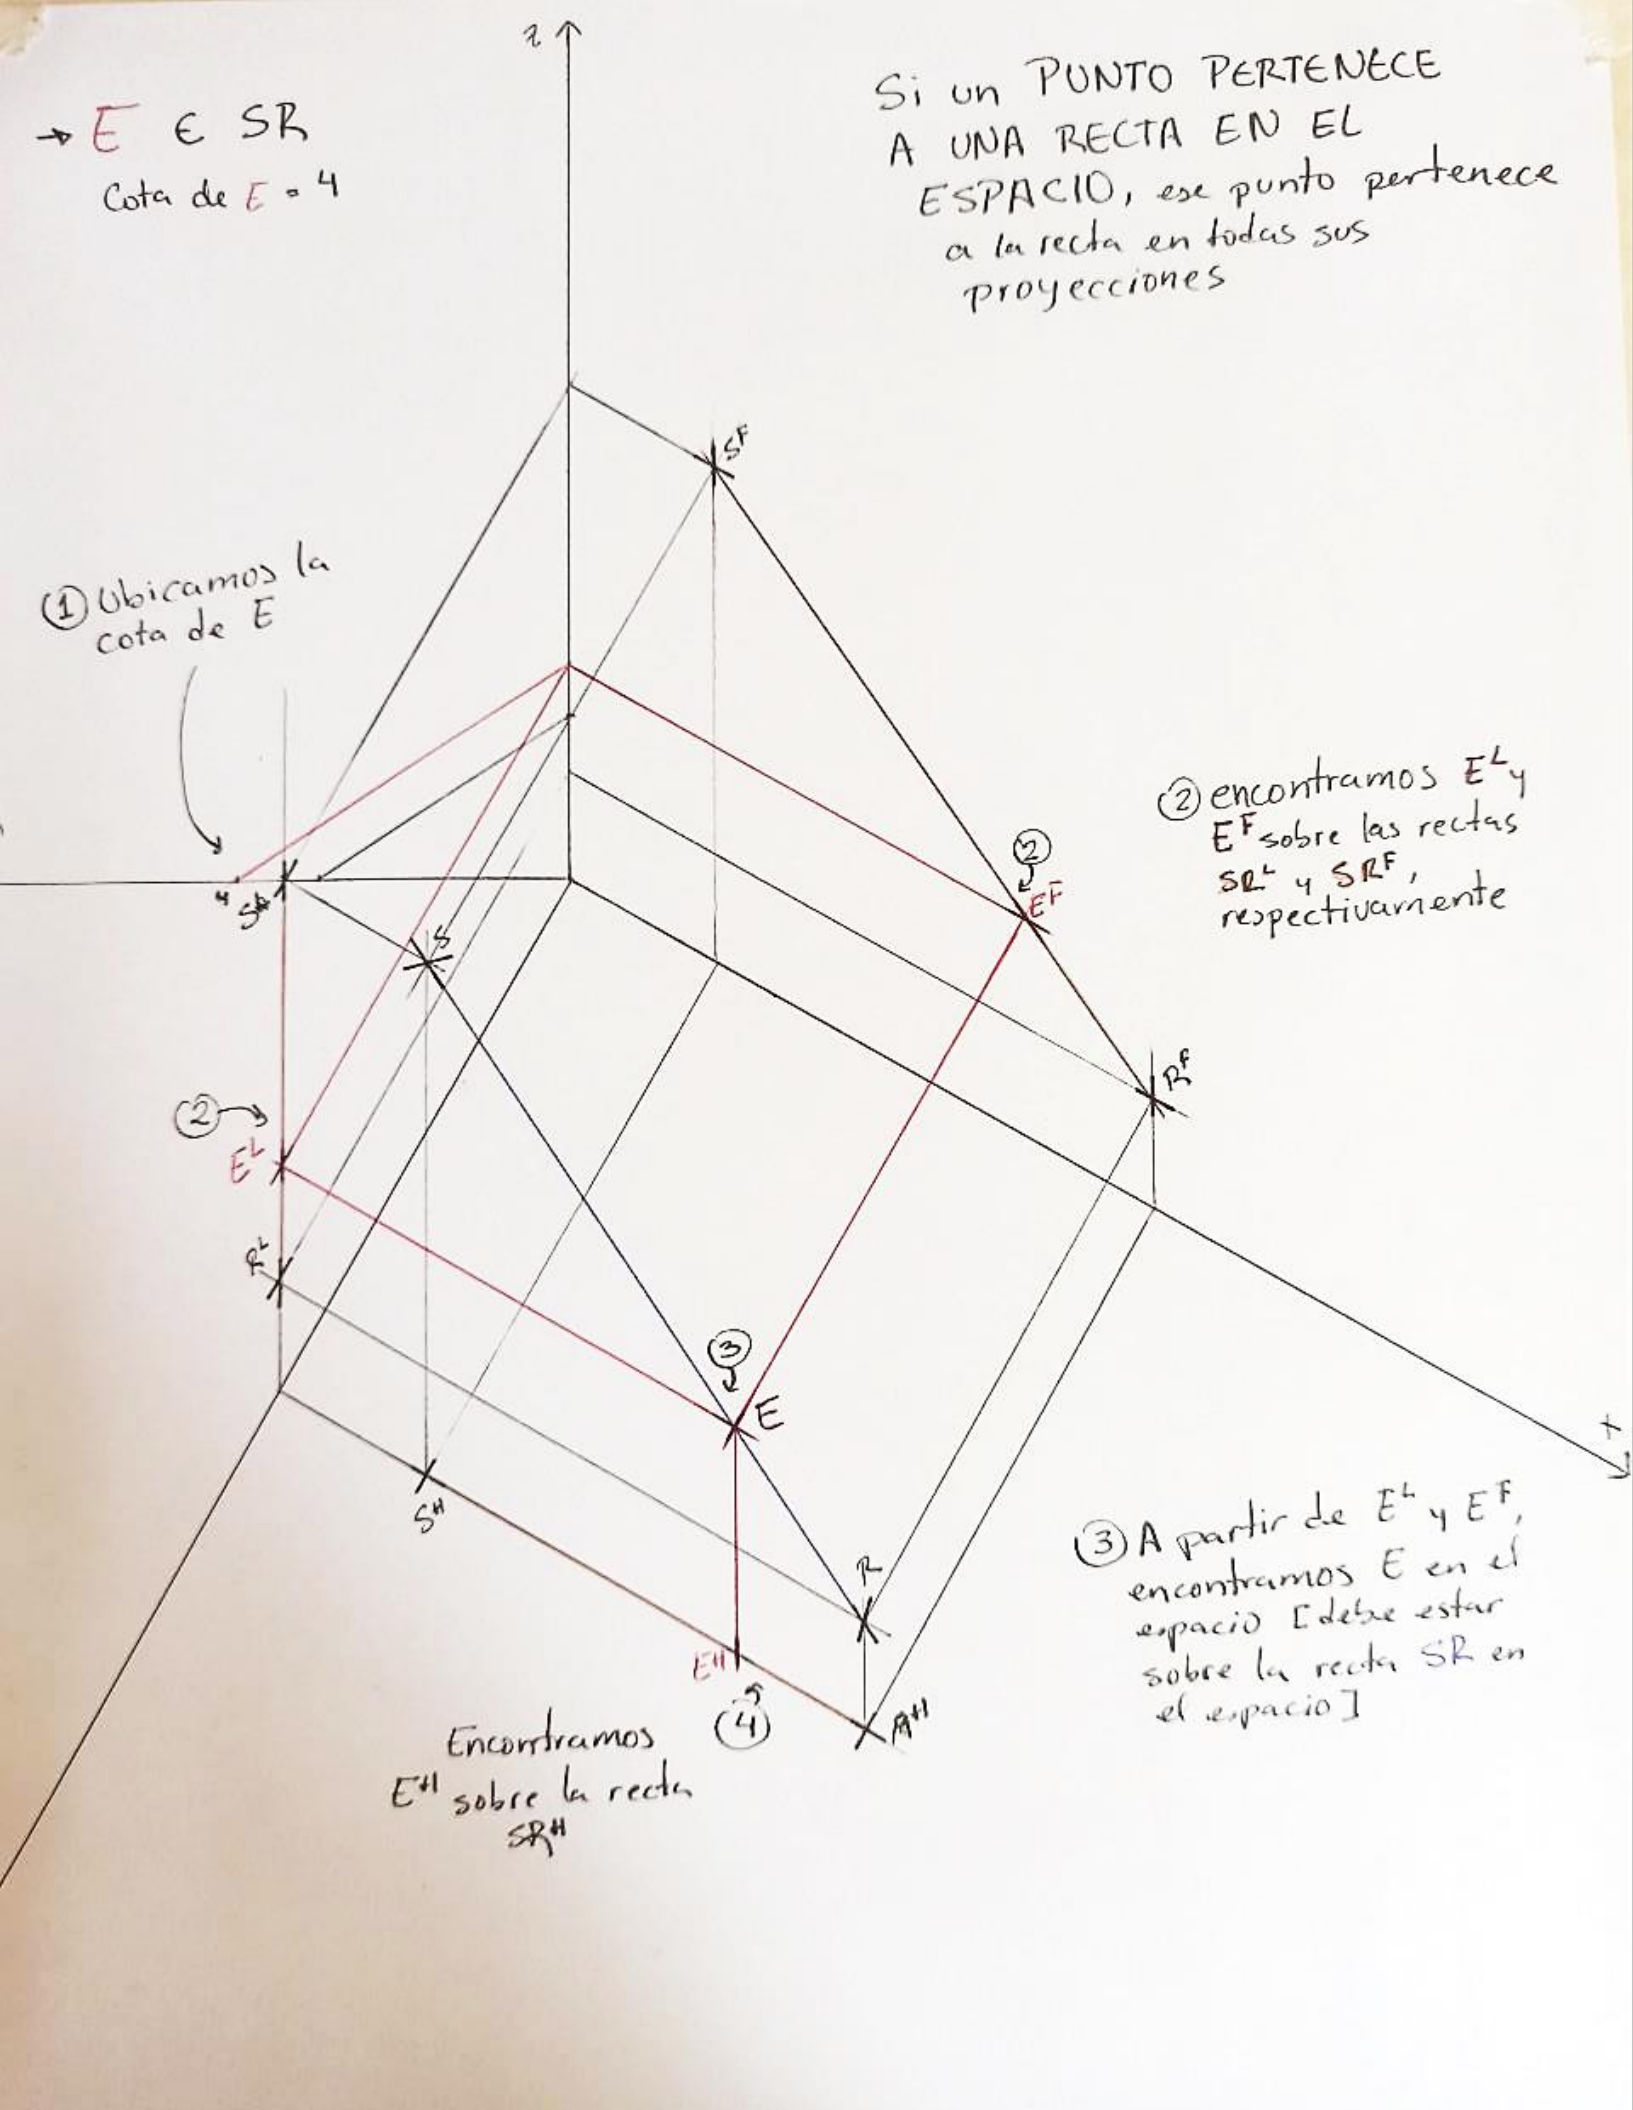 z
→ E ∈ SR
Cota de E = 4
Si un PUNTO PERTENECE
A UNA RECTA EN EL
ESPACIO, ese punto pertenece
a la recta en todas sus
proyecciones
S^F
① Ubicamos la
cota de E
② encontramos E^L y
E^F sobre las rectas
SR^L y SR^F,
respectivamente
②
E^F
4
S
R^F
②
E^L
R^L
③
E
x
S^H
③ A partir de E^L y E^F,
encontramos E en el
espacio [debe estar
sobre la recta SR en
el espacio]
R
E^H
④
Encontramos
E^H sobre la recta
SR^H